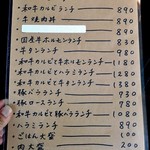 ・和牛カルビランチ 890
・牛焼肉丼 890
・国産牛ホルモンランチ 830
・牛タンランチ 980
・和牛カルビと牛ホルモンランチ 1080
・和牛カルビとハラミランチ 1130
・和牛カルビと牛タンランチ 1280
・豚バラランチ 730
・豚ロースランチ 780
・和牛カルビと豚バラランチ 980
・ハラミランチ 890
・ごはん大盛 100
・肉大盛 200